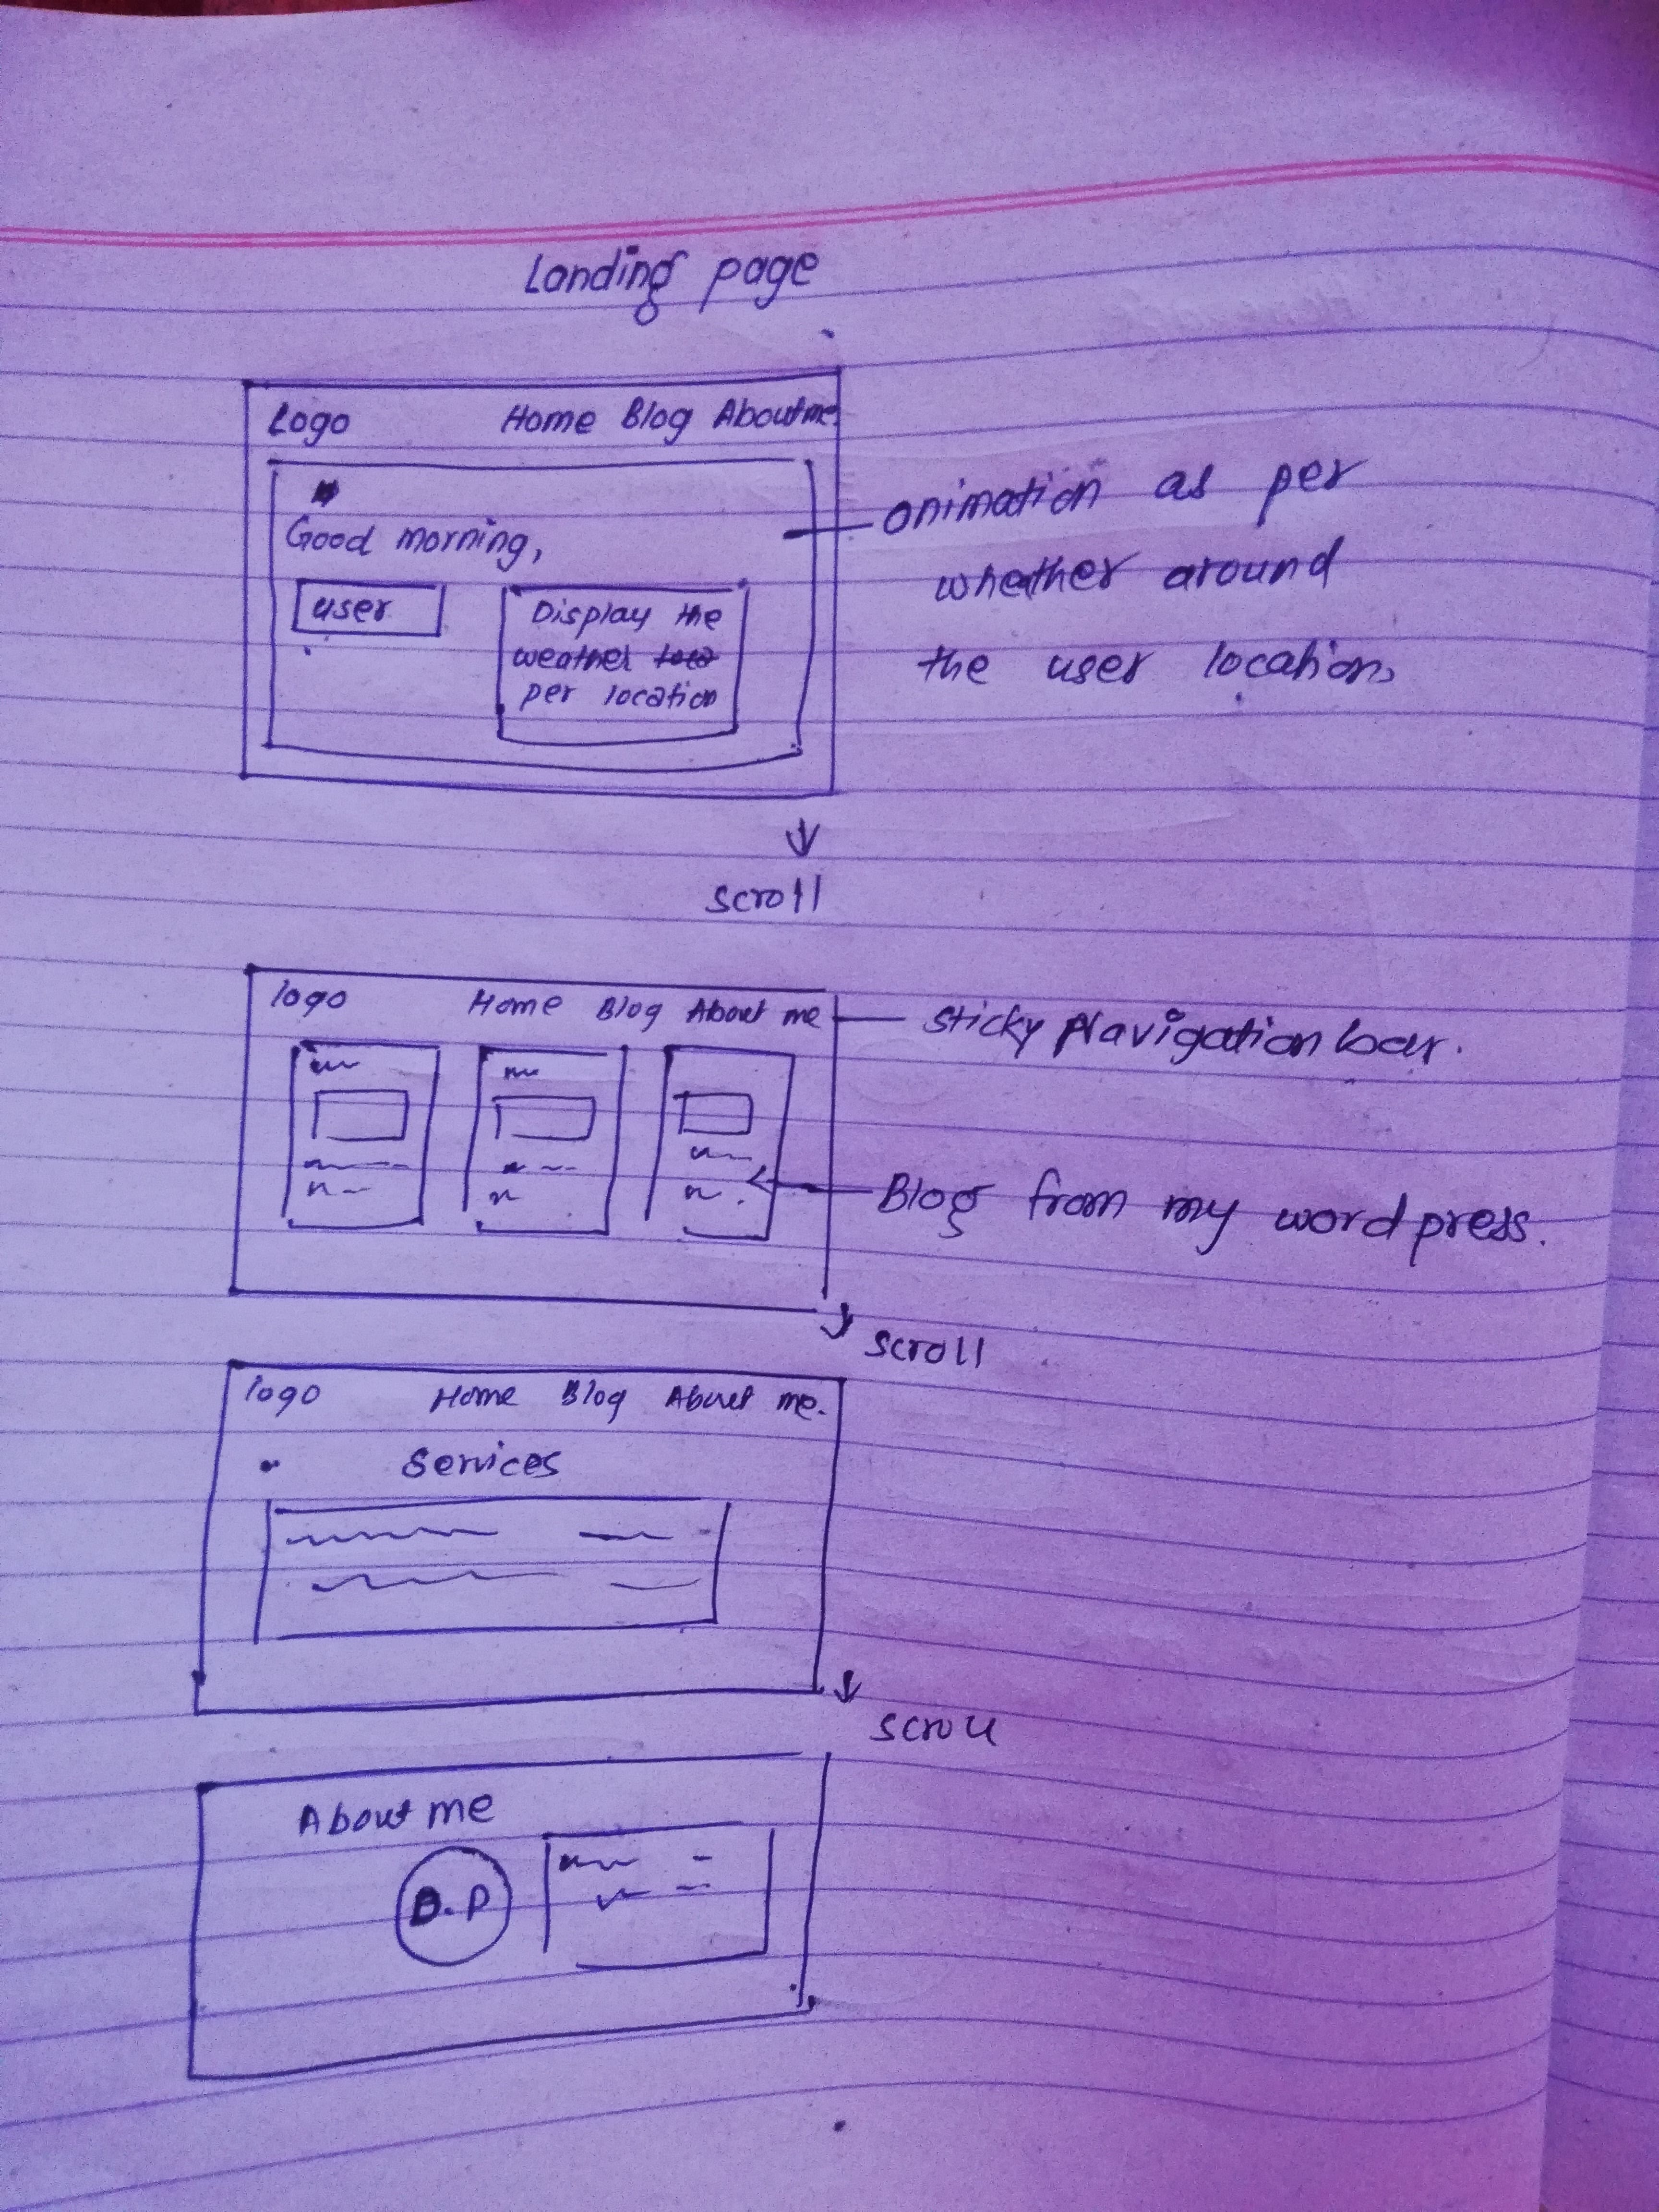 Landing page
Logo Home Blog About me.
Good morning,
user
Display the
weather
per location
animation as per
wheather around
the user location,
scroll
logo Home Blog About me
sticky Navigation bar.
Blog from my wordpress.
scroll
logo Home Blog About me.
Services
scroll
About me
D.P